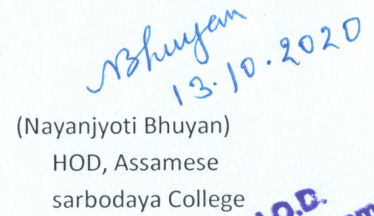 NBhuyan
13.10.2020
(Nayanjyoti Bhuyan)
HOD, Assamese
sarbodaya College